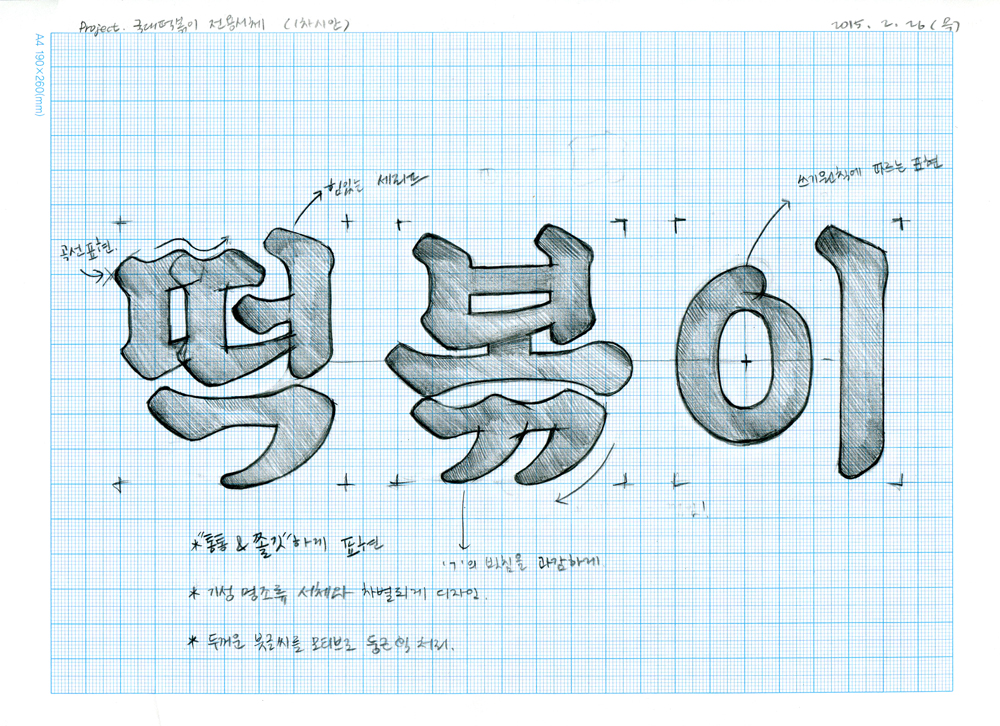 Project. 국대떡볶이 전용서체 (1차시안)
2015. 2. 26 (목)
A4 190×260(mm)
힘있는 세리프
쓰기원칙에 따르는 표현
곡선표현.
떡볶이
*"통통 & 쫄깃"하게 표현
'ㄱ'의 받침을 과감하게
* 기성 명조류 서체와 차별되게 디자인.
* 두꺼운 붓글씨를 모티브로 둥근 처리.